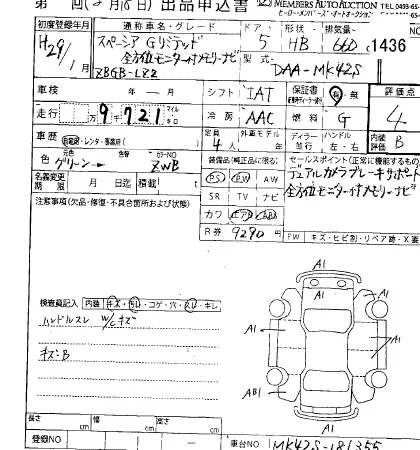 第 回(2月18日)出品申込書 MEMBERS AUTO AUCTION
ヒーローメンバーズ・オートオークション TEL 0493-65-
初度登録年月 通称車名・グレード ドア 形状 排気量
H29/1月 スペーシア Gリミテッド 5 HB 660 c 1436
全方位モニター付メモリーナビ 型式
ZBGB-LZ2 DAA-MK42S
車検 年 月 シフト IAT 保証書 有・無 評価点
走行 9千721 マイル キロ 冷房 AAC 燃料 G 4
車歴 自家用・レンタ・事故車( ) 定員 4人 外車モデル 年 ディーラー 並行 ハンドル 左・右 内装 B
元色 グリーン→ 色替 カラーNO ZWB 装備品(純正品に限る) セールスポイント(正常に機能するもの)
名義変更期限 月 日迄 積載 t PS PW AW デュアルカメラブレーキサポート
注意事項(欠品・修復・不具合箇所および状態) SR TV ナビ 全方位モニター付メモリーナビ
カワ エアB ABS
R券 9290円 FW キズ・ヒビ割・リペア跡・X要
A1
A1
検査員記入 内装 キズ・汚レ・コゲ・穴・スレ・キレ
ハンドルスレ w/cキズ A1 A1
キズ・B
AB1 A1
A1
長さ cm 幅 cm 高さ cm
登録NO 車台NO MK42S-181355